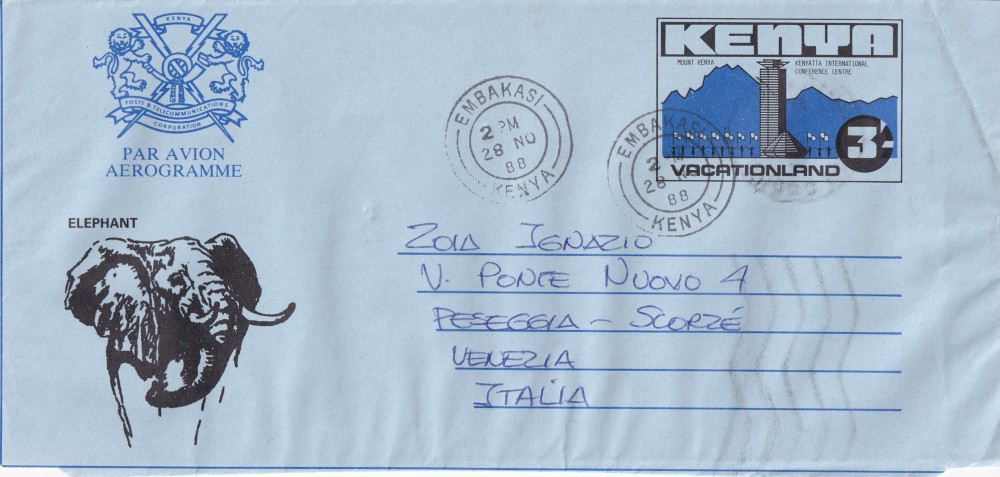 KENYA
POSTS & TELECOMMUNICATIONS
CORPORATION
PAR AVION
AEROGRAMME
ELEPHANT
EMBAKASI
2 PM
28 NO
88
KENYA
EMBAKASI
2 M
28 N
88
KENYA
KENYA
MOUNT KENYA
KENYATTA INTERNATIONAL
CONFERENCE CENTRE
3/-
VACATIONLAND
ZOIA IGNAZIO
V. PONTE NUOVO 4
PESEGGIA - SCORZÉ
VENEZIA
ITALIA